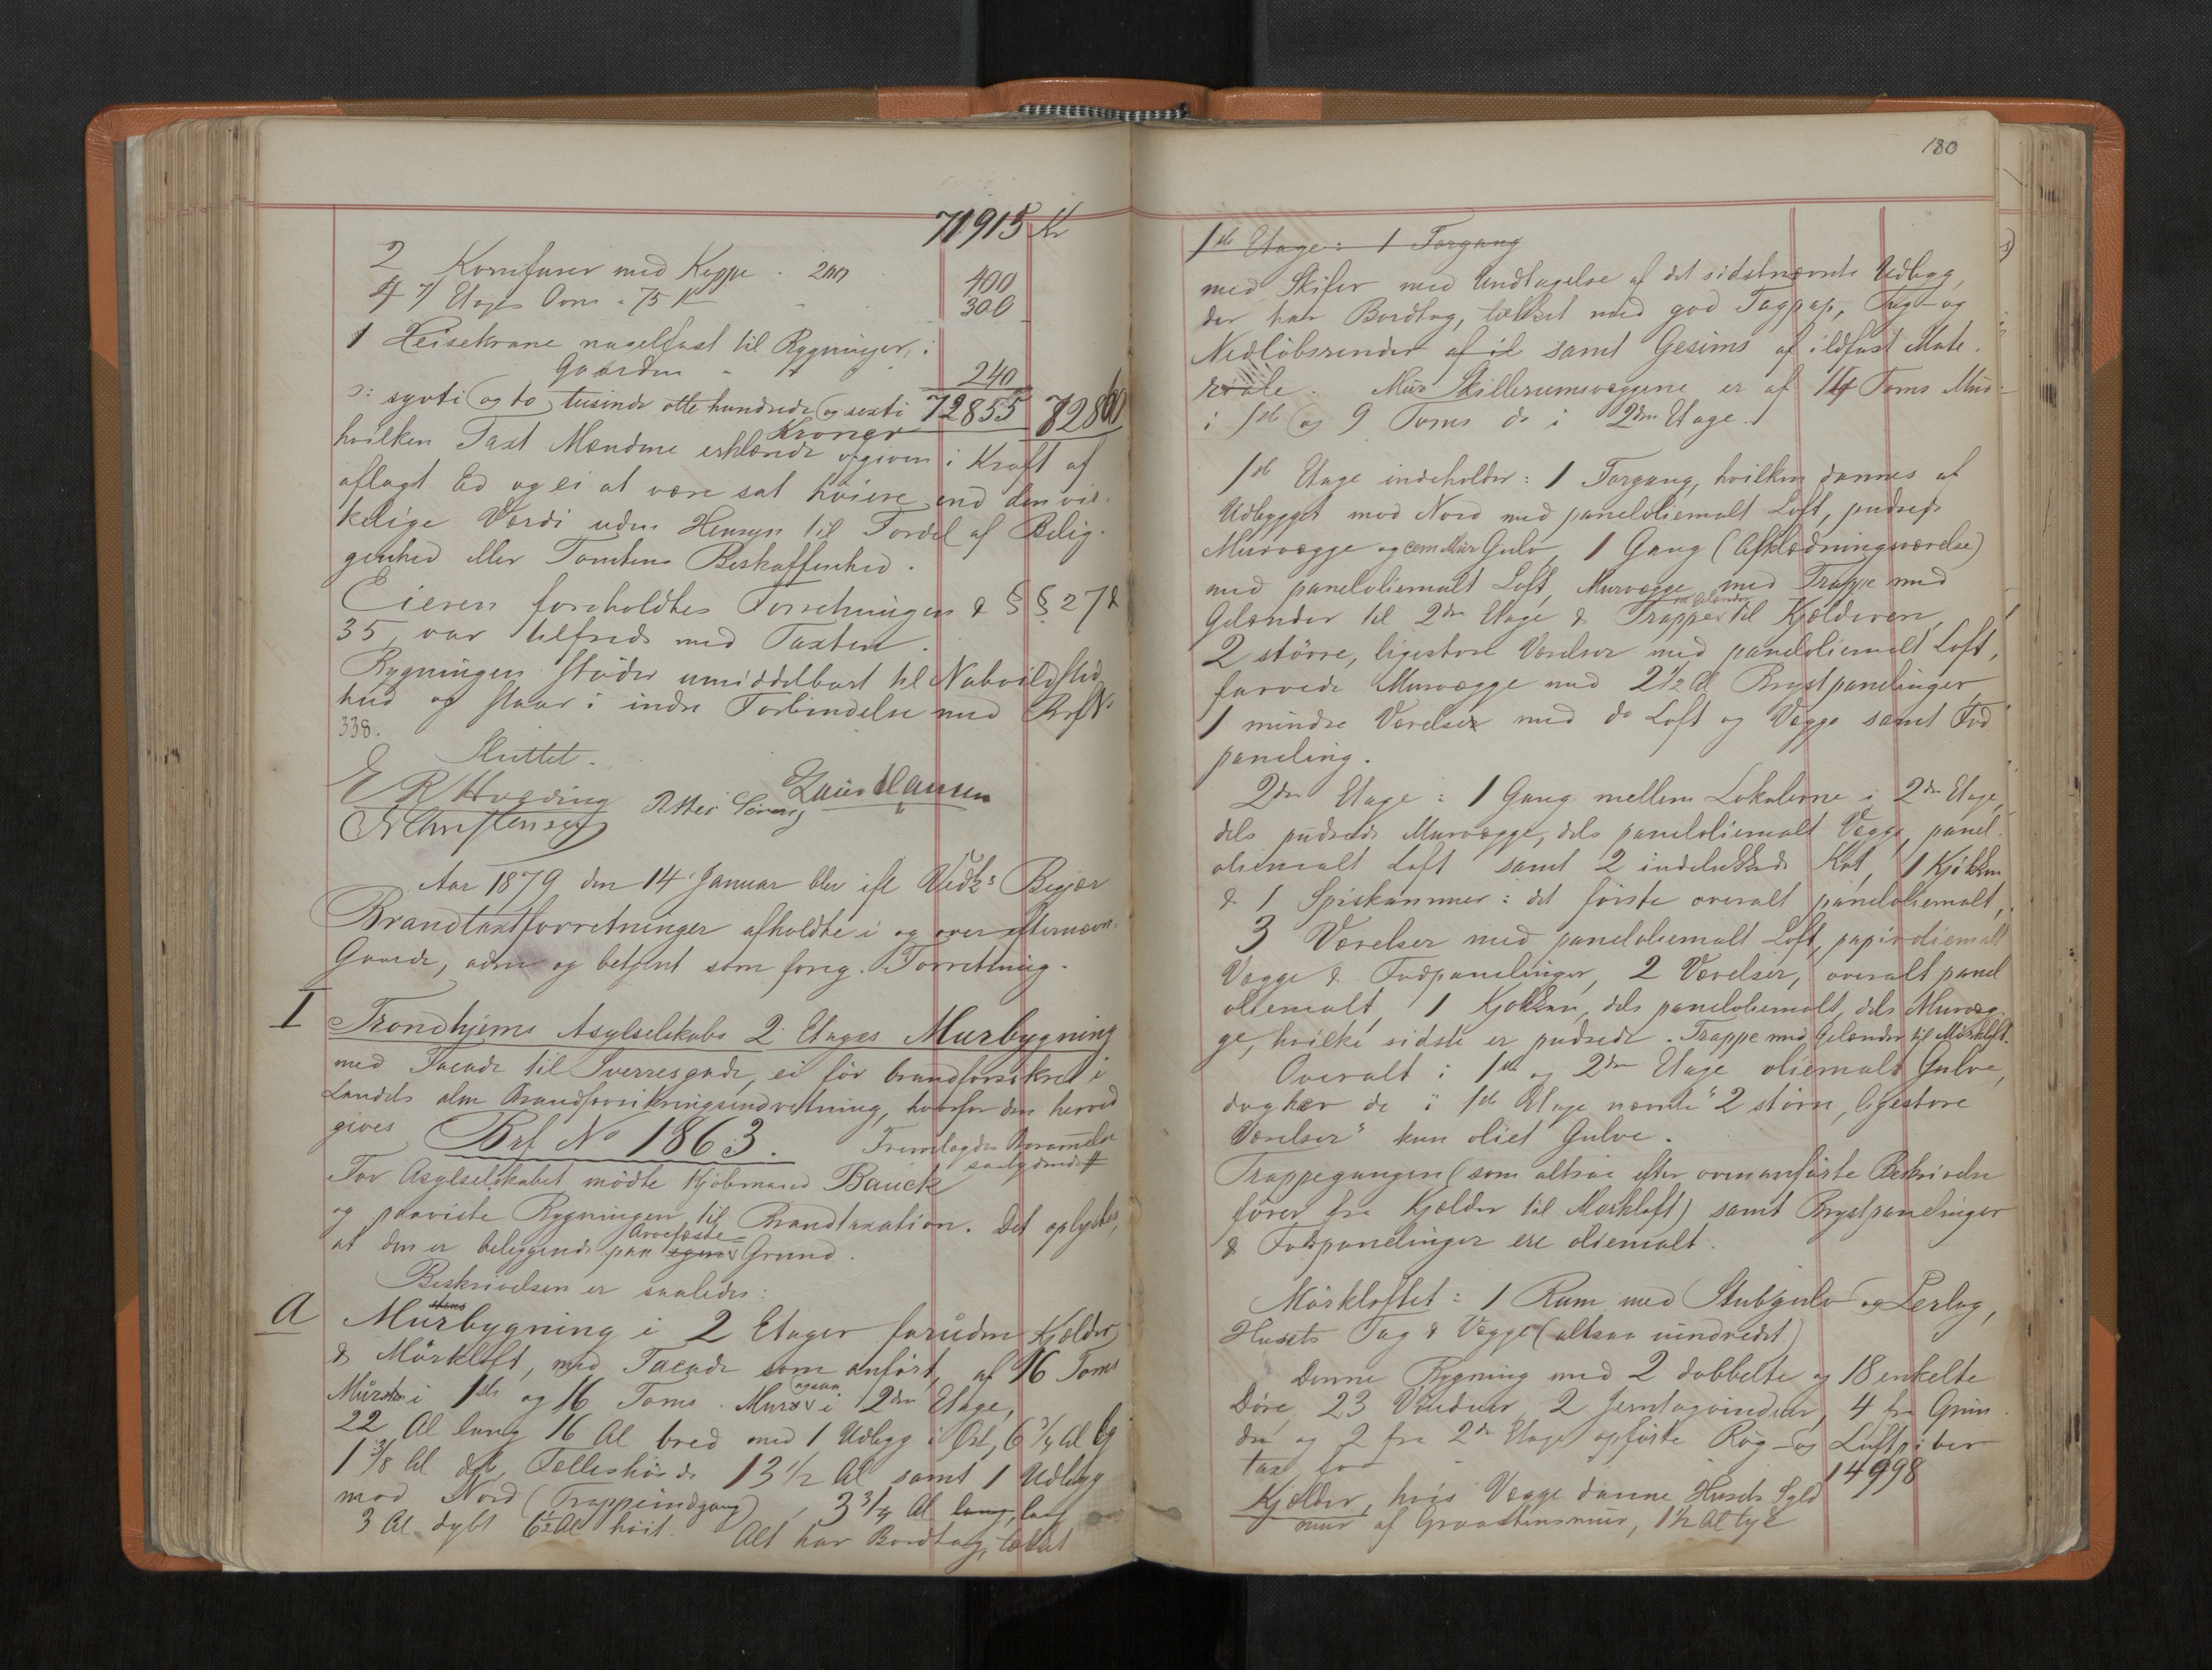 71915 Kr
2 Komfurer med Kappe . 200 400
4 7/ Etages Ovne a 75 Kr 300
1 Heisekrane nagelfast til Bygningen, i
Gaarden " " 240
ɔ: sytti og to tusinde otte hundrede og sexti 72855 72860
Kroner
hvilken Taxt Mændene erklærede afgiven i Kraft af
aflagt Ed og ei at være sat høiere end den vir-
kelige Værdi uden Hensyn til Fordel af Belig-
genhed eller Tomtens Beskaffenhed.
Eieren foreholdtes Forretningen & §§ 27 &
35, var tilfreds med Taxten.
Bygningen støder umiddelbart til Nabo
hed og staar i indre Forbindelse med Brf No
338.
Sluttet.
E R Hveding Petter Laur Hansen
Christensen
Aar 1879 den 14 Januar blev ifl Vedk:s Begjær
Brandtaxtforretninger afholdte i og over efternævn-
Gaarde, adm og betjent som foreg. Forretning.
I Trondhjems Asylselskabs 2 Etages Murbygning
med Facade til Sverresgade, ei før brandforsikret i
Landets alm Brandforsikringsindretning, hvorfor den herved
gives Brf No 1863. Fremlagdes
For Asylselskabet mødte Kjøbmand Bauck
og paaviste Bygningen til Brandtaxation. Det oplystes,
Arvefæste-
at den er beliggende paa egen Grund.
Beskrivelsen er saaledes:
A Murbygning i 2 Etager foruden Kjælder
& Mørkloft, med Facade som anført, af 16 Toms
ogsaa
Mur i 1ste og 16 Toms Mur i 2den Etage,
22 Al lang 16 Al bred med 1 Udbygg i Øst, 6 3/4 Al lg
1 3/8 Al db, Felleshøide 13 1/2 Al samt 1 Udbygg
mod Nord (Trappeindgang), 3 3/4 Al lang, lang
3 Al dybt 6 1/2 Al høit. Alt har Bordtag, tækket
180
1ste Etage: 1 Forgang
med Skifer med Undtagelse af det sidstnævnte Udbygg,
der har Bordtag, tækket med god Tagpap, Tag- og
Nedløbsrender af il samt Gesims af ildfast Mate-
riale. Mur Skillerumsvæggene er af 14 Toms Mur
i 1ste og 9 Toms do i 2den Etage.
1ste Etage indeholder: 1 Forgang, hvilken dannes af
Udbygget mod Nord med paneloliemalt Loft, pudsede
Murvægge og cem Mur Gulv, 1 Gang (Afklædningsværelse)
med paneloliemalt Loft, Murvægge med Trappe med
m Gelænder
Gelænder til 2den Etage & Trappe til Kjælderen,
2 større, ligestore Værelser med paneloliemalt Loft,
farvede Murvægge med 2 1/2 Al Brystpanelinger,
1 mindre Værelser med do Loft og Vægge samt Fod
paneling.
2den Etage: 1 Gang mellem Lokalerne i 2den Etage,
dels pudsede Murvægge, dels paneloliemalt Vægge, panel-
oliemalt Loft samt 2 indelukkede Kot, 1 Kjøkken
& 1 Spiskammer: det første overalt paneloliemalt,
3 Værelser med paneloliemalt Loft, papiroliemalt
Vægge & Fodpanelinger, 2 Værelser, overalt panel
oliemalt, 1 Kjøkken, dels paneloliemalt, dels Murvæg-
ge, hvilke sidste er pudsede. Trappe med Gelænder til Mørkloft.
Overalt i 1ste og 2den Etage oliemalt Gulve,
dog har de i 1ste Etage nævnte "2 større, ligestore
Værelser" kun oliet Gulve.
Trappegangen (som altsaa efter ovenanførte Beskrivelse
fører fra Kjælder til Mørkloft) samt Brystpanelinger
& Fodpanelinger ere oliemalt.
Mørkloftet: 1 Rum med Stubgulv og Lerlag,
Husets Tag & Vægge (altsaa uindredet)
Denne Bygning med 2 dobbelte og 18 enkelte
Døre, 23 Vinduer, 2 Jerntagvinduer, 4 fra Grun
den og 2 fra 2den Etage opførte Røg- og Luftpiber
tax for 14998
Kjælder, hvis Vægge danne Husets Syld
mur af Graastensmur, 1 1/2 Al tyk